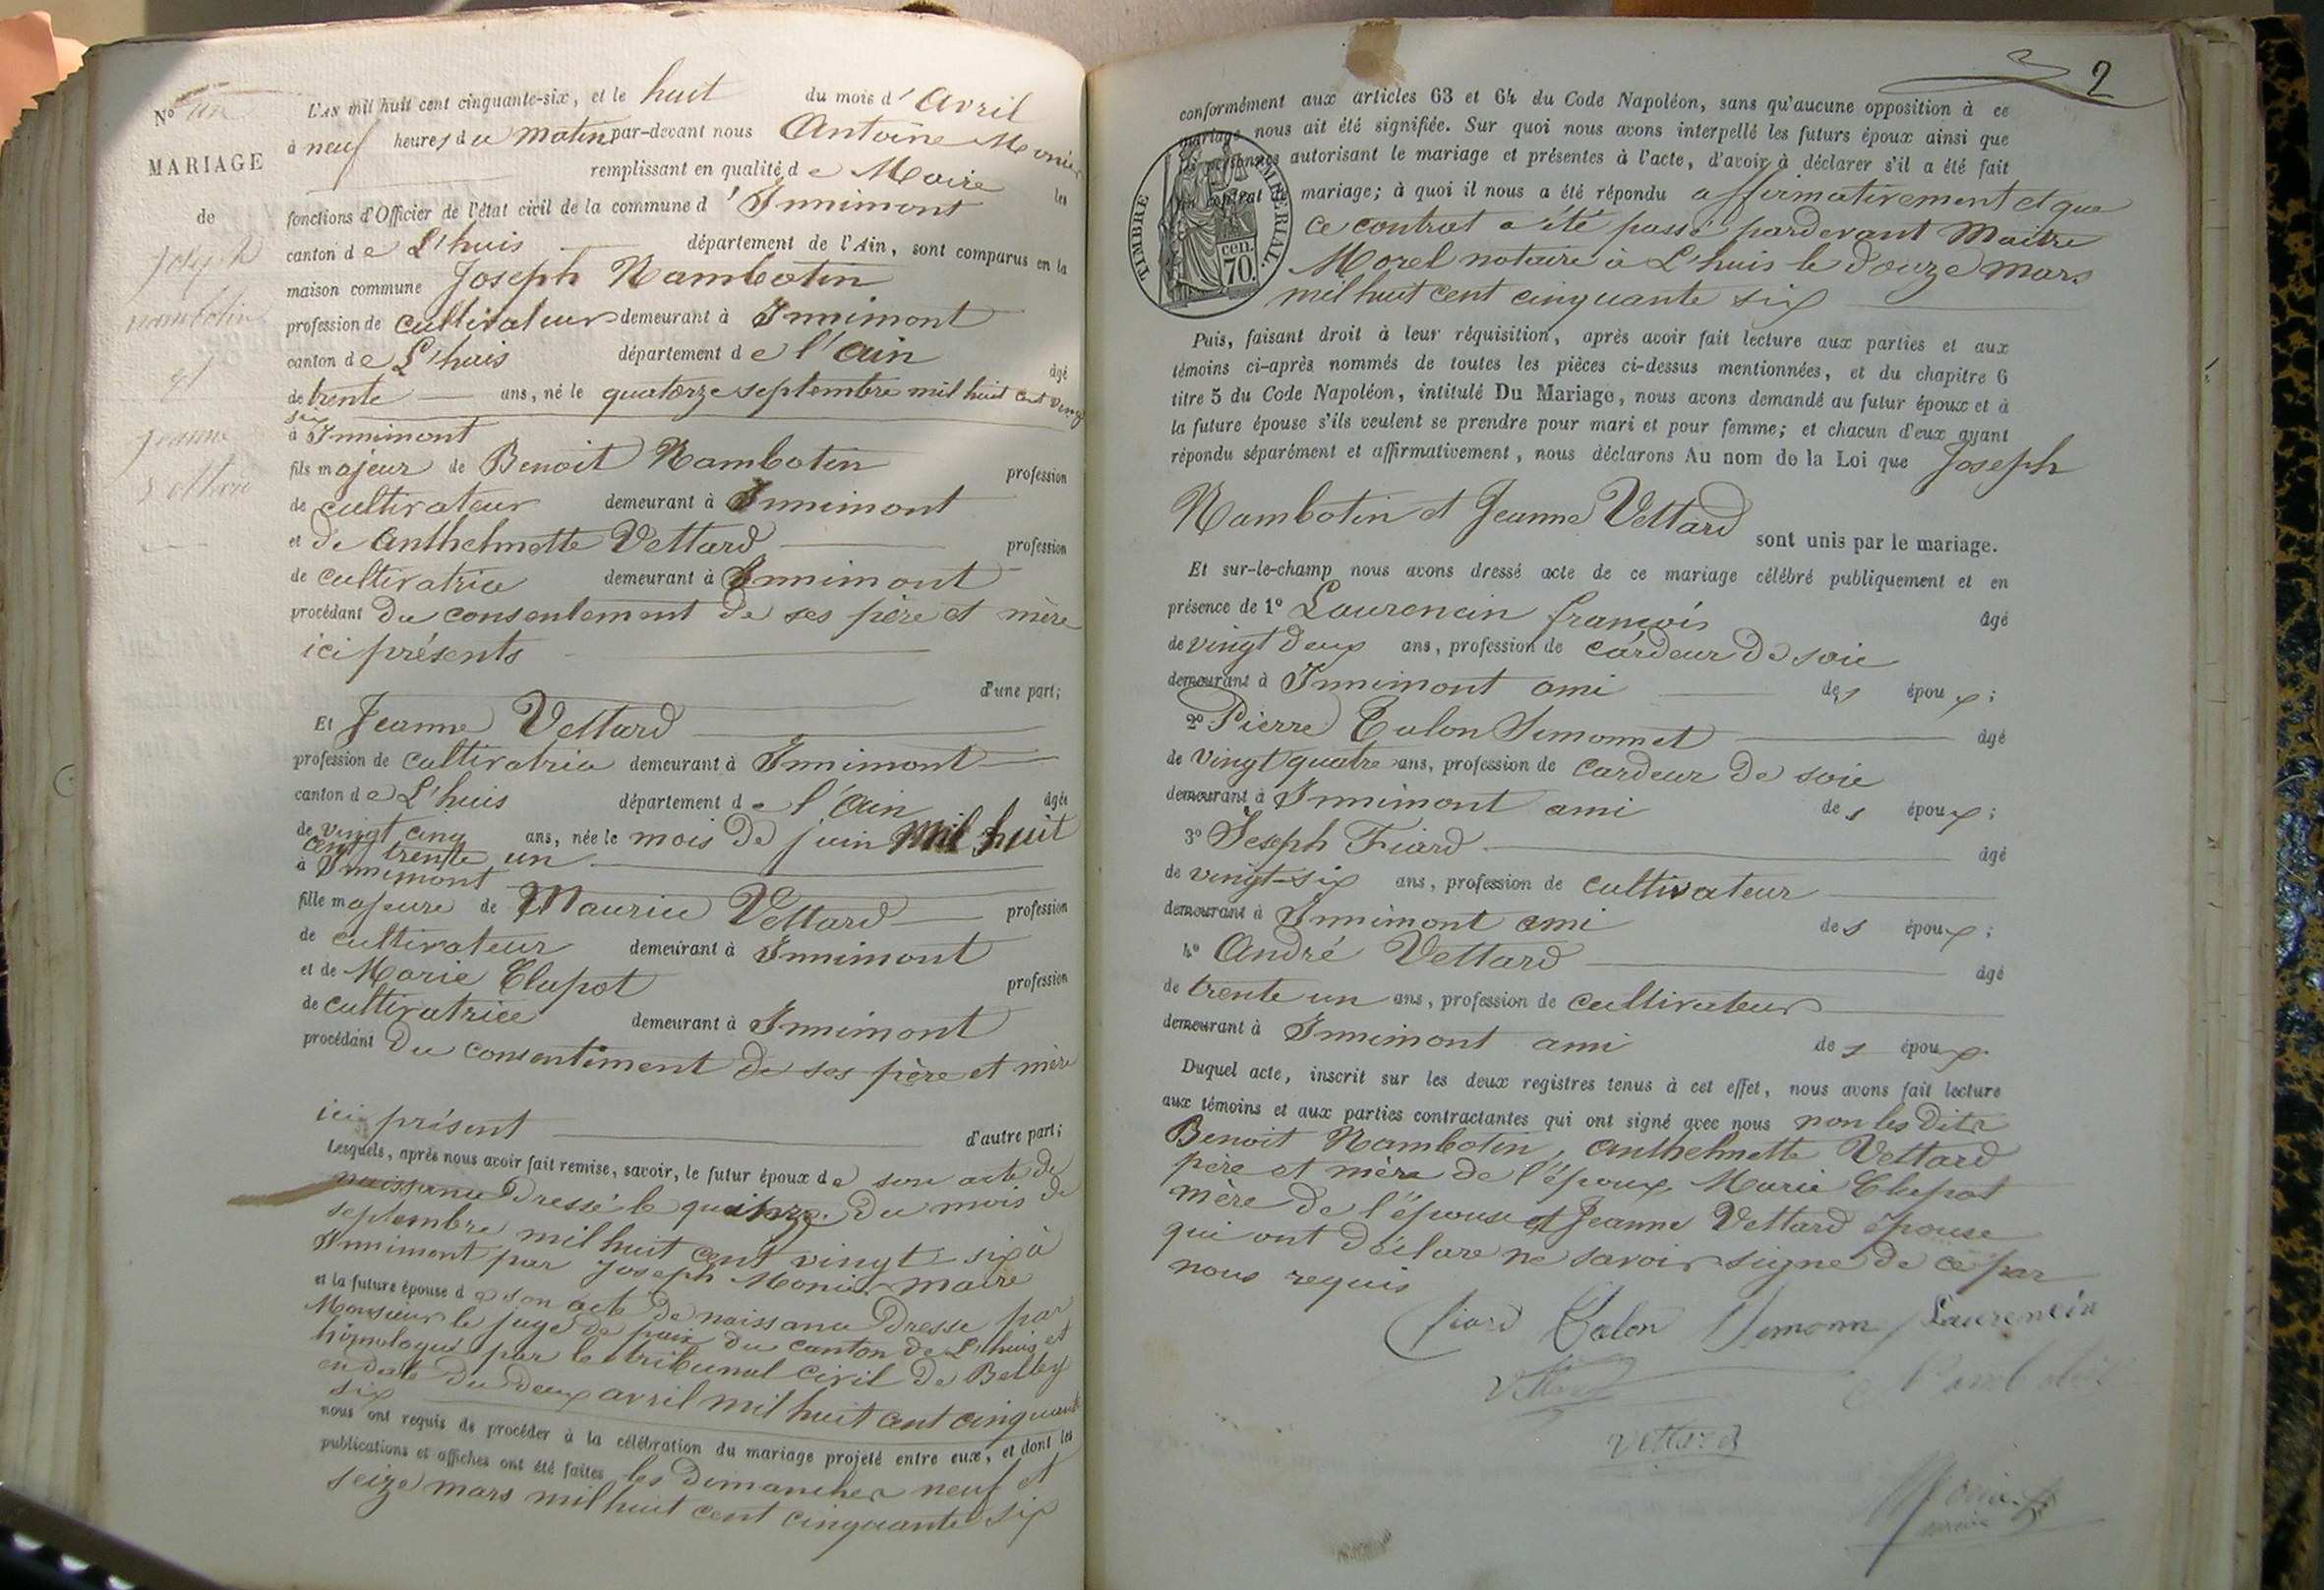 No un
MARIAGE
de
Joseph
nambotin
et
jeanne
vettard
L'AN mil huit cent cinquante-six, et le huit du mois d' Avril
à neuf heures du matin par-devant nous Antoine Monier
remplissant en qualité de Maire les
fonctions d'Officier de l'état civil de la commune d' Innimont
canton de L'huis département de l'Ain, sont comparus en la
maison commune Joseph Nambotin
profession de cultivateur demeurant à Innimont
canton de L'huis département de l'Ain âgé
de trente ans, né le quatorze septembre mil huit cent vingt
six
à Innimont
fils majeur de Benoit Nambotin profession
de cultivateur demeurant à Innimont
et de Anthelmette Vettard profession
de cultivatrice demeurant à Innimont
procédant du consentement de ses père et mère
ici présents
d'une part;
Et Jeanne Vettard
profession de cultivatrice demeurant à Innimont
canton de L'huis département de l'Ain âgée
de vingt cinq ans, née le mois de juin mil huit
cent trente un
à Innimont
fille majeure de Maurice Vettard profession
de cultivateur demeurant à Innimont
et de Marie Clapot profession
de cultivatrice demeurant à Innimont
procédant du consentiment de ses père et mère
ici présent d'autre part;
Lesquels, après nous avoir fait remise, savoir, le futur époux de son acte de
naissance dressé le du mois de
septembre mil huit cent vingt six à
Innimont par Joseph Monier maire
et la future épouse de son acte de naissance dresse par
Monsieur le juge de paix du canton de L'huis et
homologué par le tribunal civil de Belley
en date du deux avril mil huit cent cinquante
six
nous ont requis de procéder à la célébration du mariage projeté entre eux, et dont les
publications et affiches ont été faites les dimanches neuf et
seize mars mil huit cent cinquante six
2
conformément aux articles 63 et 64 du Code Napoléon, sans qu'aucune opposition à ce
mariage nous ait été signifiée. Sur quoi nous avons interpellé les futurs époux ainsi que
les personnes autorisant le mariage et présentes à l'acte, d'avoir à déclarer s'il a été fait
un contrat de mariage; à quoi il nous a été répondu affirmativement et que
ce contrat a été passé pardevant Maitre
Morel notaire à L'huis le douze mars
mil huit cent cinquante six
TIMBRE IMPÉRIAL.
cen.
70.
Puis, faisant droit à leur réquisition, après avoir fait lecture aux parties et aux
témoins ci-après nommés de toutes les pièces ci-dessus mentionnées, et du chapitre 6
titre 5 du Code Napoléon, intitulé Du Mariage, nous avons demandé au futur époux et à
la future épouse s'ils veulent se prendre pour mari et pour femme; et chacun d'eux ayant
répondu séparément et affirmativement, nous déclarons Au nom de la Loi que Joseph
Nambotin et Jeanne Vettard sont unis par le mariage.
Et sur-le-champ nous avons dressé acte de ce mariage célébré publiquement et en
présence de 1° Laurencin françois âgé
de vingt deux ans, profession de cardeur de soie
demeurant à Innimont ami des époux;
2° Pierre Talon Simonnet âgé
de vingt quatre ans, profession de cardeur de soie
demeurant à Innimont ami des époux;
3° Joseph Fiard âgé
de vingt-six ans, profession de cultivateur
demeurant à Innimont ami des époux;
4° André Vettard âgé
de trente un ans, profession de cultivateur
demeurant à Innimont ami des époux.
Duquel acte, inscrit sur les deux registres tenus à cet effet, nous avons fait lecture
aux témoins et aux parties contractantes qui ont signé avec nous non les dits
Benoit Nambotin, Anthelmette Vettard
père et mère de l'époux, Marie Clapot
mère de l'épouse et Jeanne Vettard épouse
qui ont déclare ne savoir signe de ce par
nous requis
fiard Talon Simonn Laurencin
Vettard Nambotin
vettard
Monier
maire